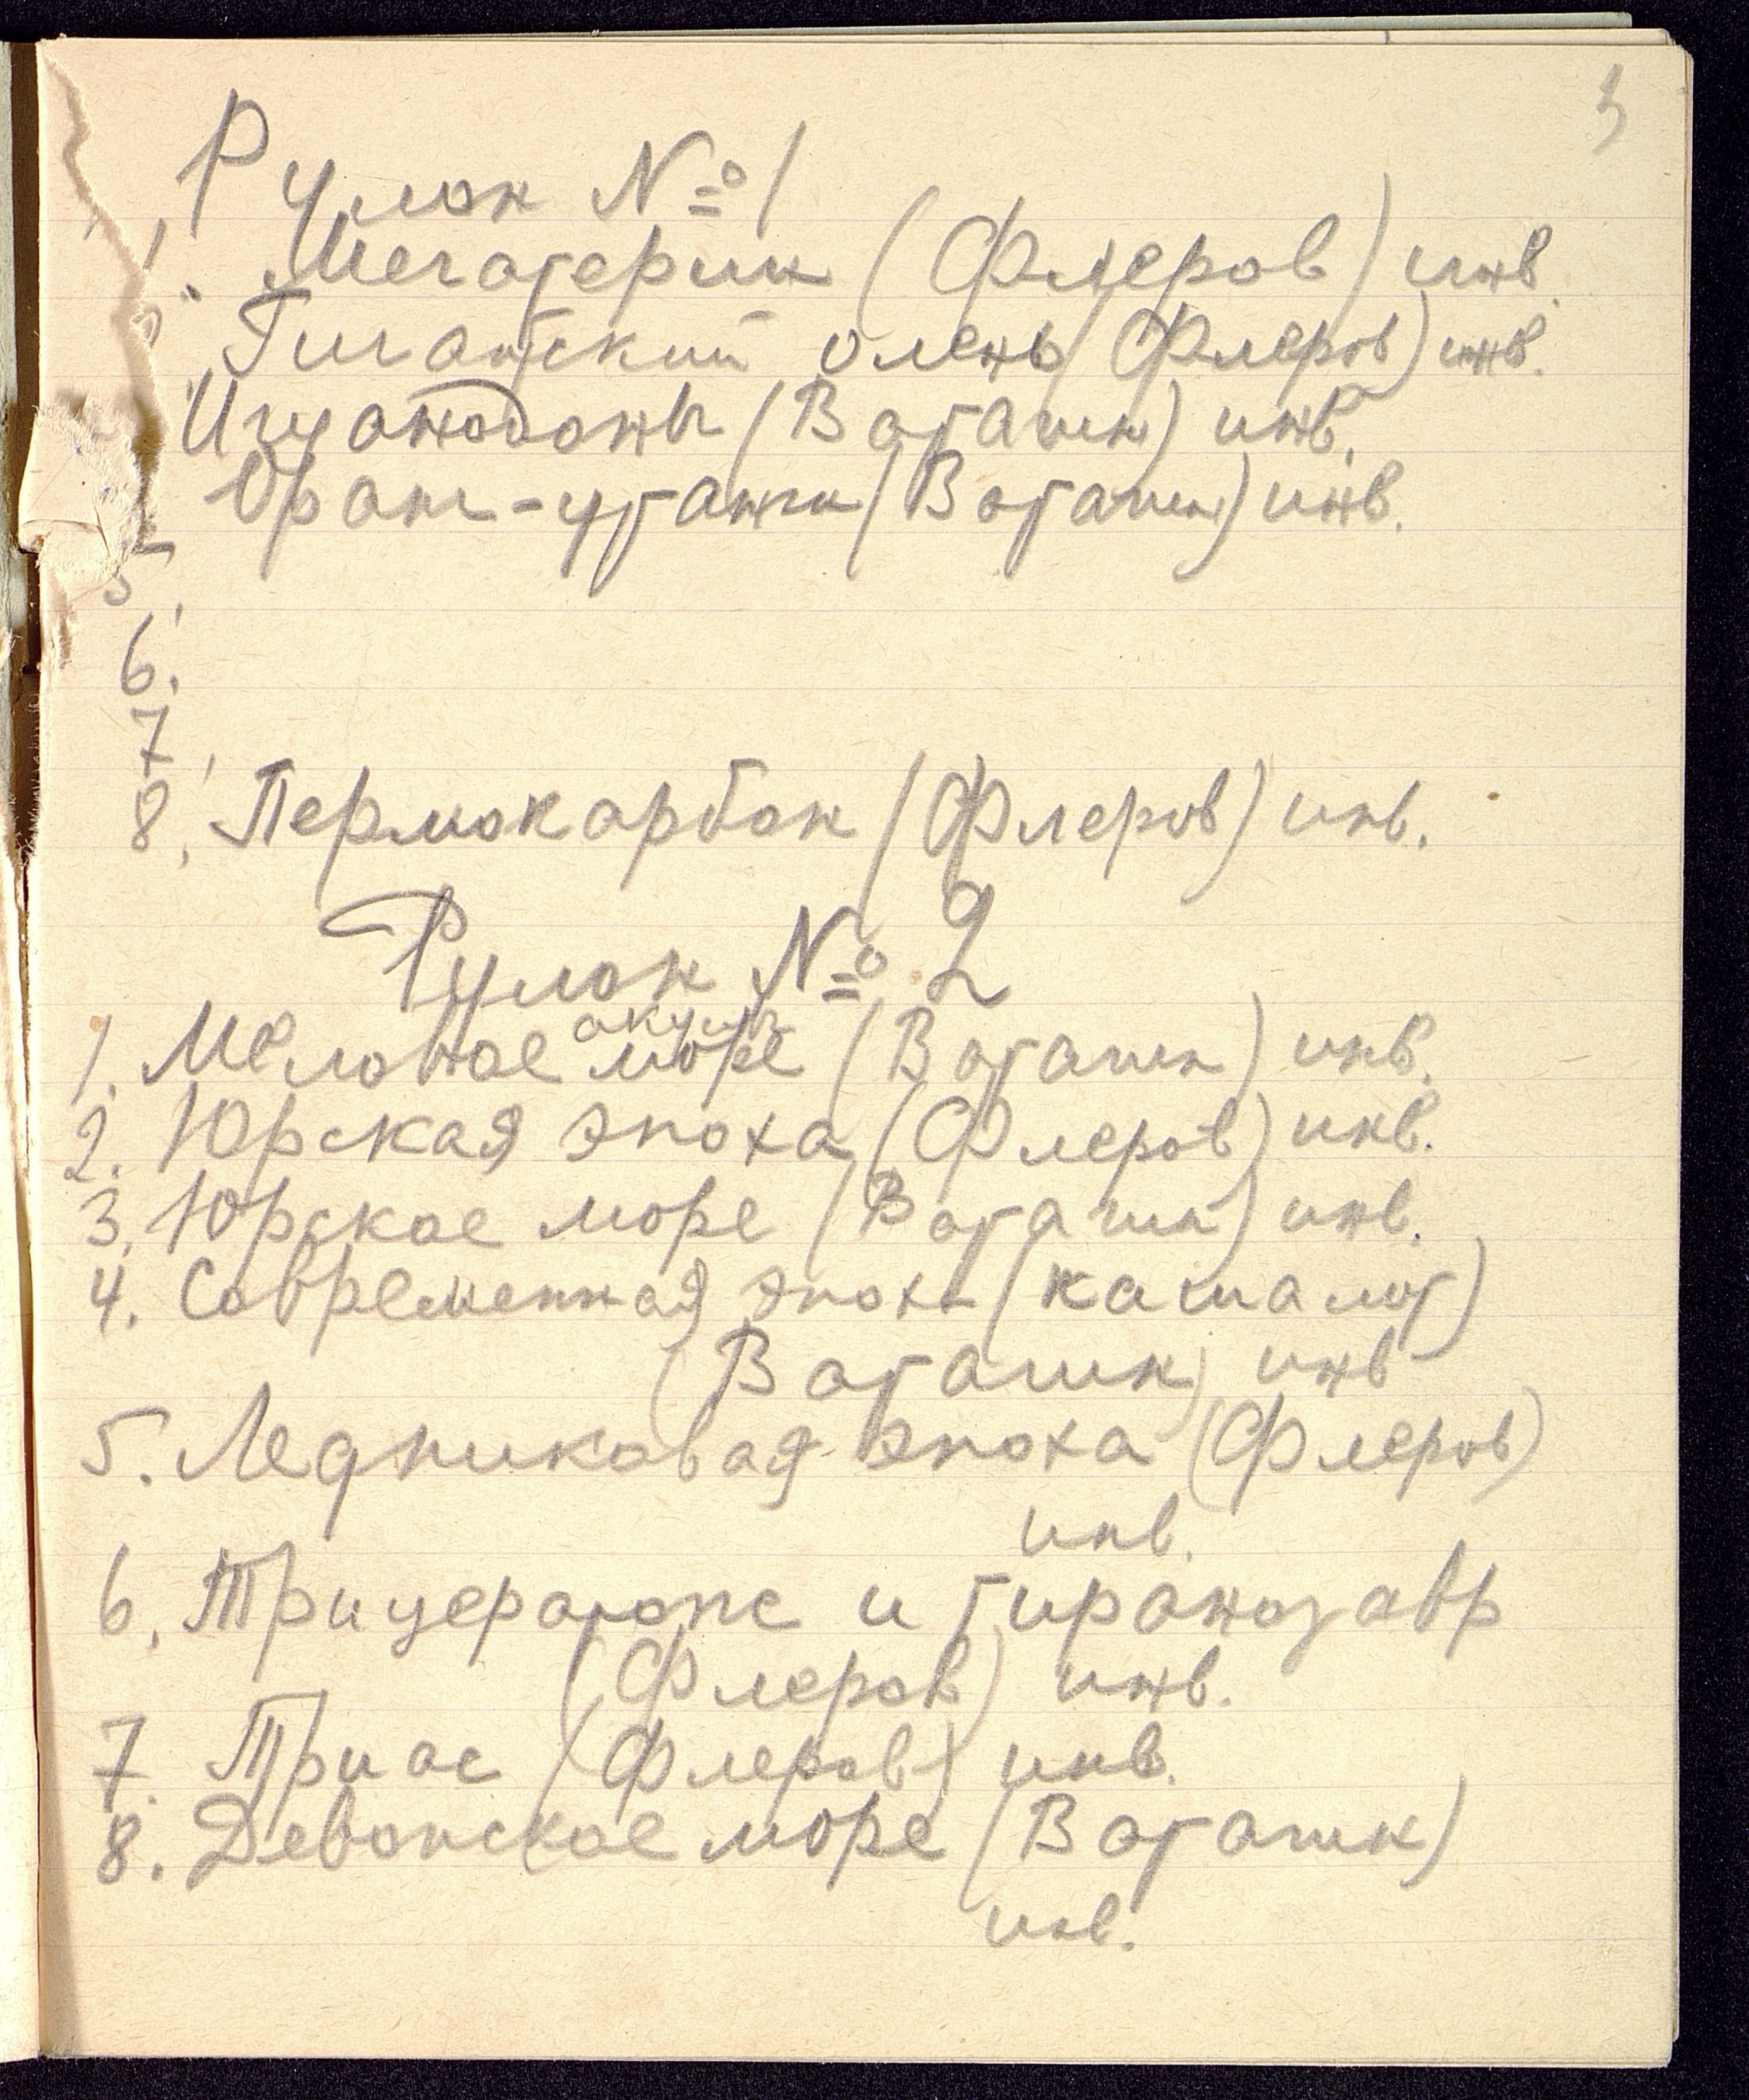 3
Рулон № 1
1. Мегатерии (Флеров) инв.
Гигантский олень (Флеров) инв.
Игуанодоны (Ватагин) инв.
Оранг-утанги (Ватагин) инв.
5.
6.
7.
8. Пермокарбон (Флеров) инв.
Рулон № 2
акулы
1. Меловое море (Ватагин) инв.
2. Юрская эпоха (Флеров) инв.
3. Юрское море (Ватагин) инв.
4. Современная эпоха (кашалот)
(Ватагин) инв
5. Ледниковая эпоха (Флеров)
инв.
6. Трицератопс и тиранозавр
(Флеров) инв.
7. Триас (Флеров) инв.
8. Девонское море (Ватагин)
инв.